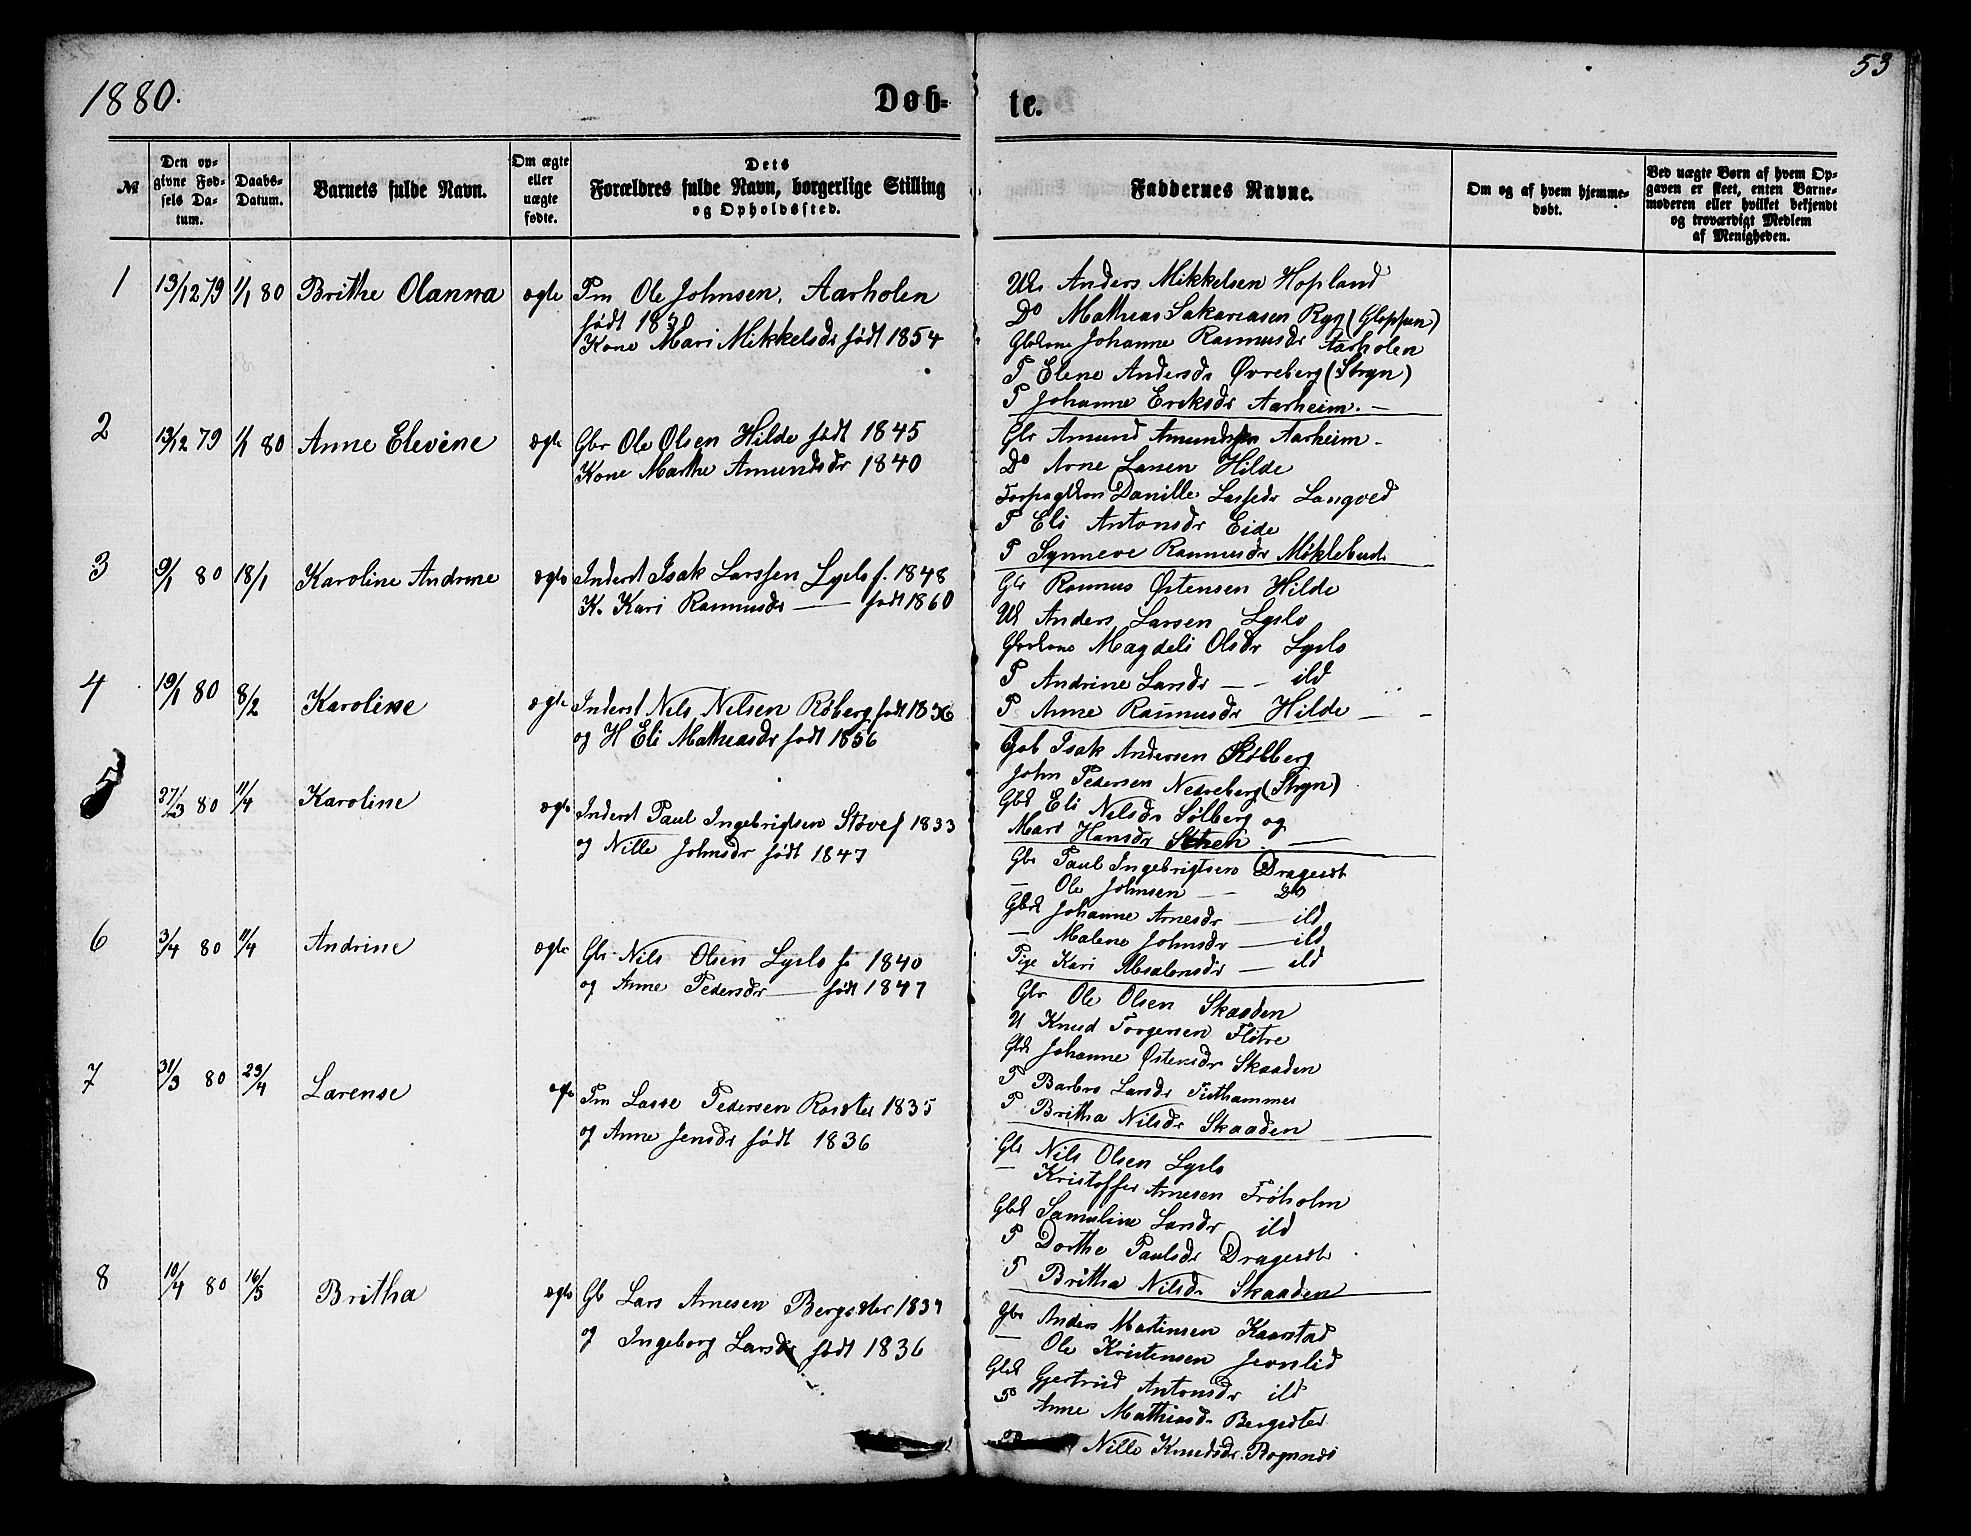 1880.
Døb-
te.
53
№
Den op-
givne Fød-
sels Da-
tum.
Daabs-
Datum.
Barnets fulde Navn.
Om ægte
eller
uægte
fødte.
Dets
Forældres fulde Navn, borgerlige Stilling
og Opholdssted.
Faddernes Navne.
Om og af hvem hjemme-
døbt.
Ved uægte Børn af hvem Op-
gaven er skeet, enten Barne-
moderen eller hvilket bekjendt
og troværdigt Medlem
af Menigheden.
1 13/12 79 1/1 80 Brithe Olanna ægte Pm Ole Johnsen, Aarholen
født
Kone Mari Mikkelsdr født 1854
Anders Mikkelsen Hopland
Do Mathias Sakariasen Ryg (Gloppen)
Johanne Rasmusdr Aarholen
P Elene Andersdr Øvreberg (Stryn)
P Johanne Eriksdr Aarheim. —
2 13/12 79 1/1 80 Anne Elevine ægte Gbr Ole Olsen Hilde født 1845
Kone Marthe Amundsdr 1840
Gbr Amund Amundsen Aarheim -
Do Arne Larsen Hilde
Danille Lassedr Langved
P Eli Antonsdr Eide
P Synneve Rasmusdr Møklebust
3 9/1 80 18/1 Karoline Andrine ægte Inderst Isak Larssen Lyslo f. 1848
K. Kari Rasmusdr — født 1860
Gbr Rasmus Østensen Hilde
Anders Larsen Lyslo
Magdeli Olsdr Lyslo
P Andrine Larsdr — ild
P Anne Rasmusdr Hilde — -
4 19/1 80 8/2 Karoline ægte Inderst Nils Nilsen Røberg født 1856
og H Eli Mathiasdr født 1856
Isak Andersen Solberg
John Pedersen Nedreberg (Stryn)
Eli Nilsdr Sølberg og
Mari Hansdr —
5 27/3 80 11/4 Karoline ægte Inderst Paul Ingebrigtsen Støve f 1833
og Nille Johnsdr født 1847
Gbr Paul Ingebrigtsen Dragesæt
— Ole Johnsen — Do
Gbk Johanne Arnesdr — ild
— Malene Johnsdr — ild
Pige Kari Absalonsdr — ild
6 3/4 80 11/4 Andrine ægte Gbr. Nils Olsen Lyslo f. 1840
og Anne Pedersdr — født 1847
Gbr Ole Olsen Skaaden
U Knud Torgersen Fløtre
Gbk Johanne Østensdr Skaaden
P Barbro Larsdr Tisthammer
P Britha Nilsdr Skaaden
7 31/3 80 23/4 Larense ægte Pm Lasse Pedersen 1835
og Anne Jensdr født 1836
Gbr Nils Olsen Lyslo
— Kristoffer Arnesen Frøholm
Gbk Samuline Larsdr ild
P Dorthe Paulsdr Dragesæt
P Britha Nilsdr Skaaden
8 10/4 80 16/5 Britha ægte Gb Lars Arnesen Bergseter 1837
og Ingeborg Larsdr født 1836
Gbr Anders Martinsen Kaarstad
— Ole Kristensen
Gbk Gjertrud Antonsdr ild
P Anne Mathiasdr Bergseter
Nille Knudsdr. Bognæs